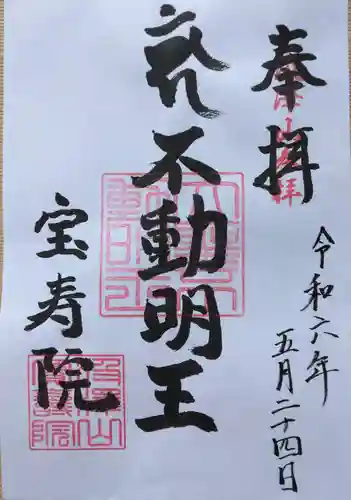 奉拝
令和六年
五月二十四日
不動明王
宝寿院